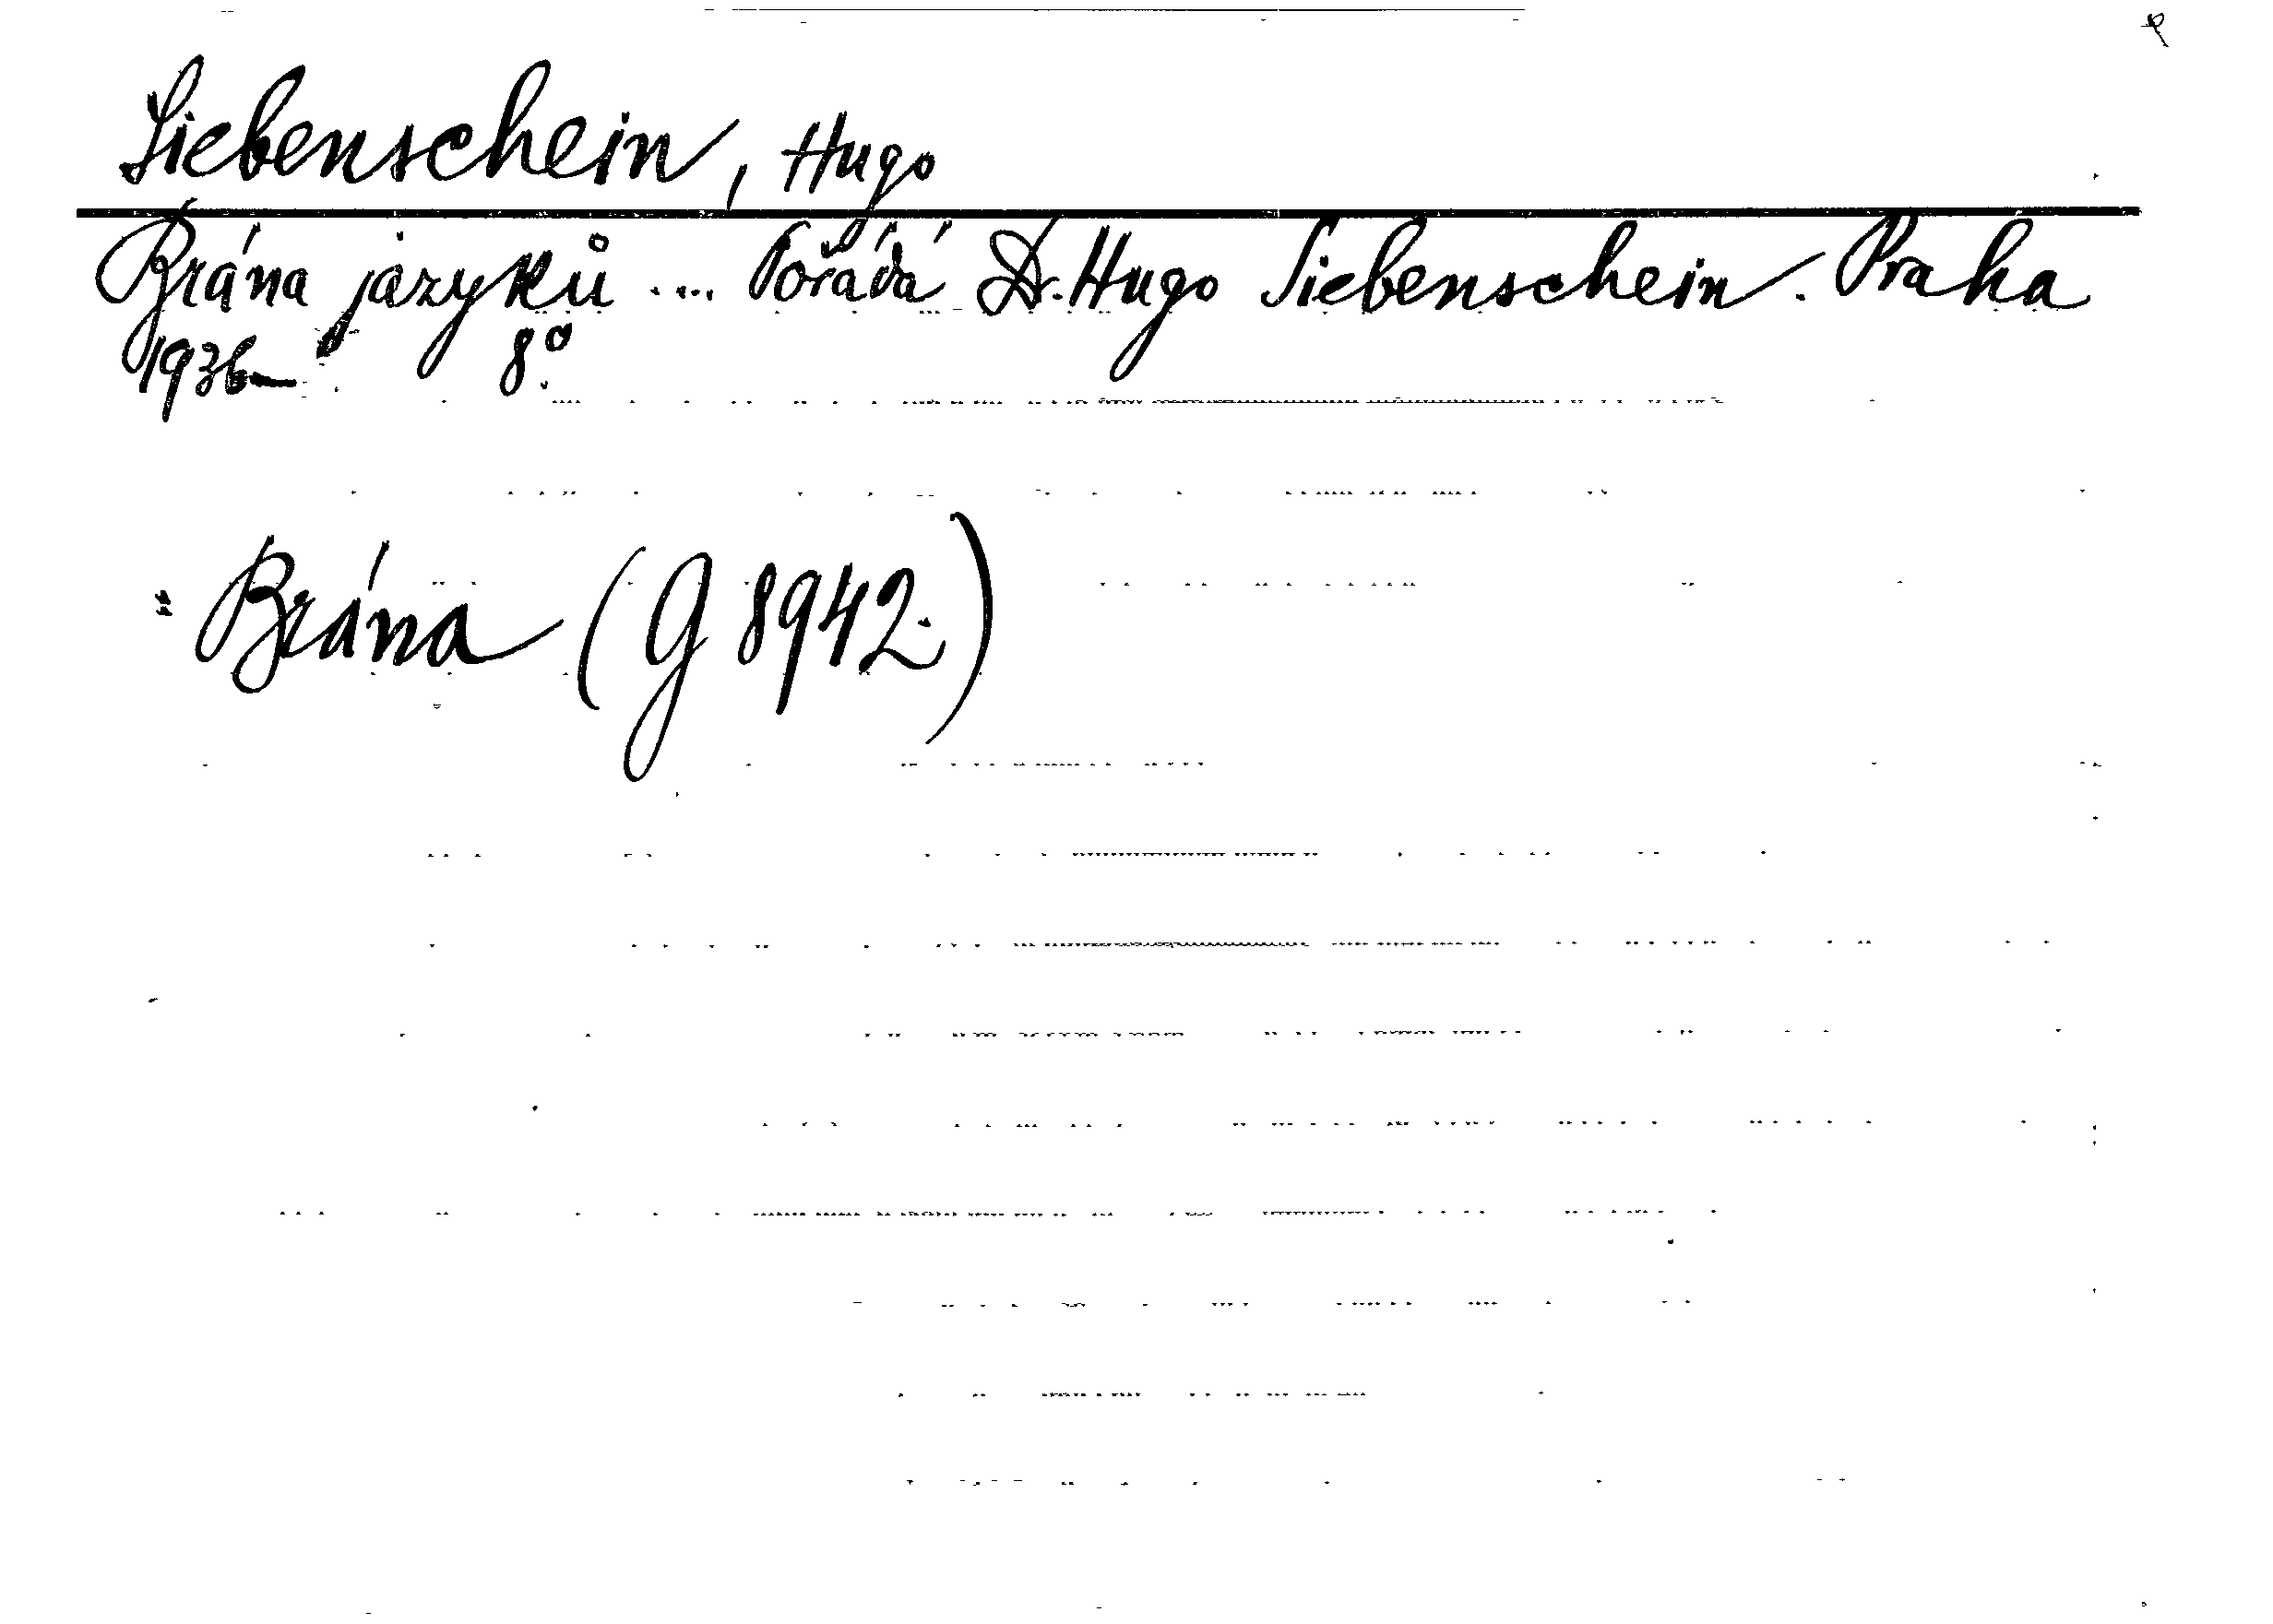 Siebenschein, Hugo
Brána jazyků .... Pořádá Dr. Hugo Siebenschein. Praha
1936— 8°.
: Brána (G 8942.)